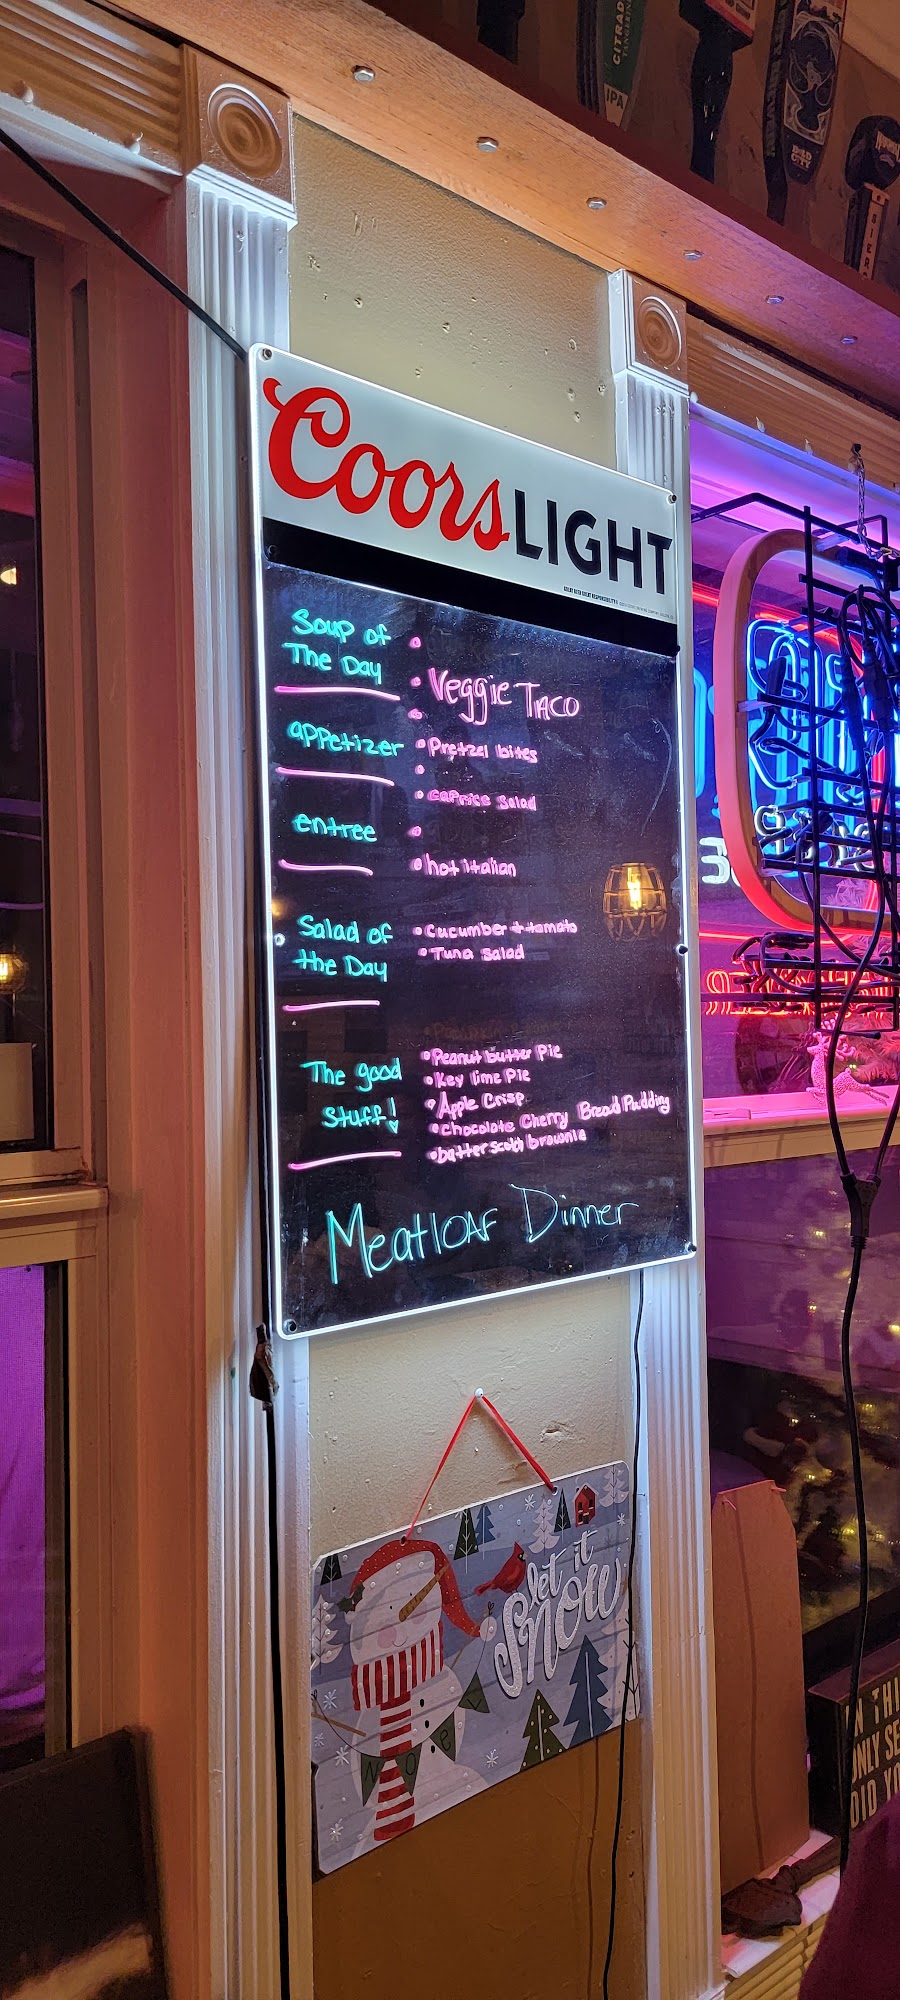 CITRADE
TANGERINE
IPA
Coors LIGHT
Soup of
The Day
• Veggie Taco
appetizer
• Pretzel bites
• caprice salad
entree
• hot italian
Salad of
the Day
• Cucumber + tomato
• Tuna Salad
The good
Stuff!
• Peanut butter Pie
• Key lime Pie
• Apple Crisp
• chocolate Cherry Bread Pudding
• butterscotch brownie
Meatloaf Dinner
let it
Snow
NOEL
IN THI
ONLY SE
DID YO